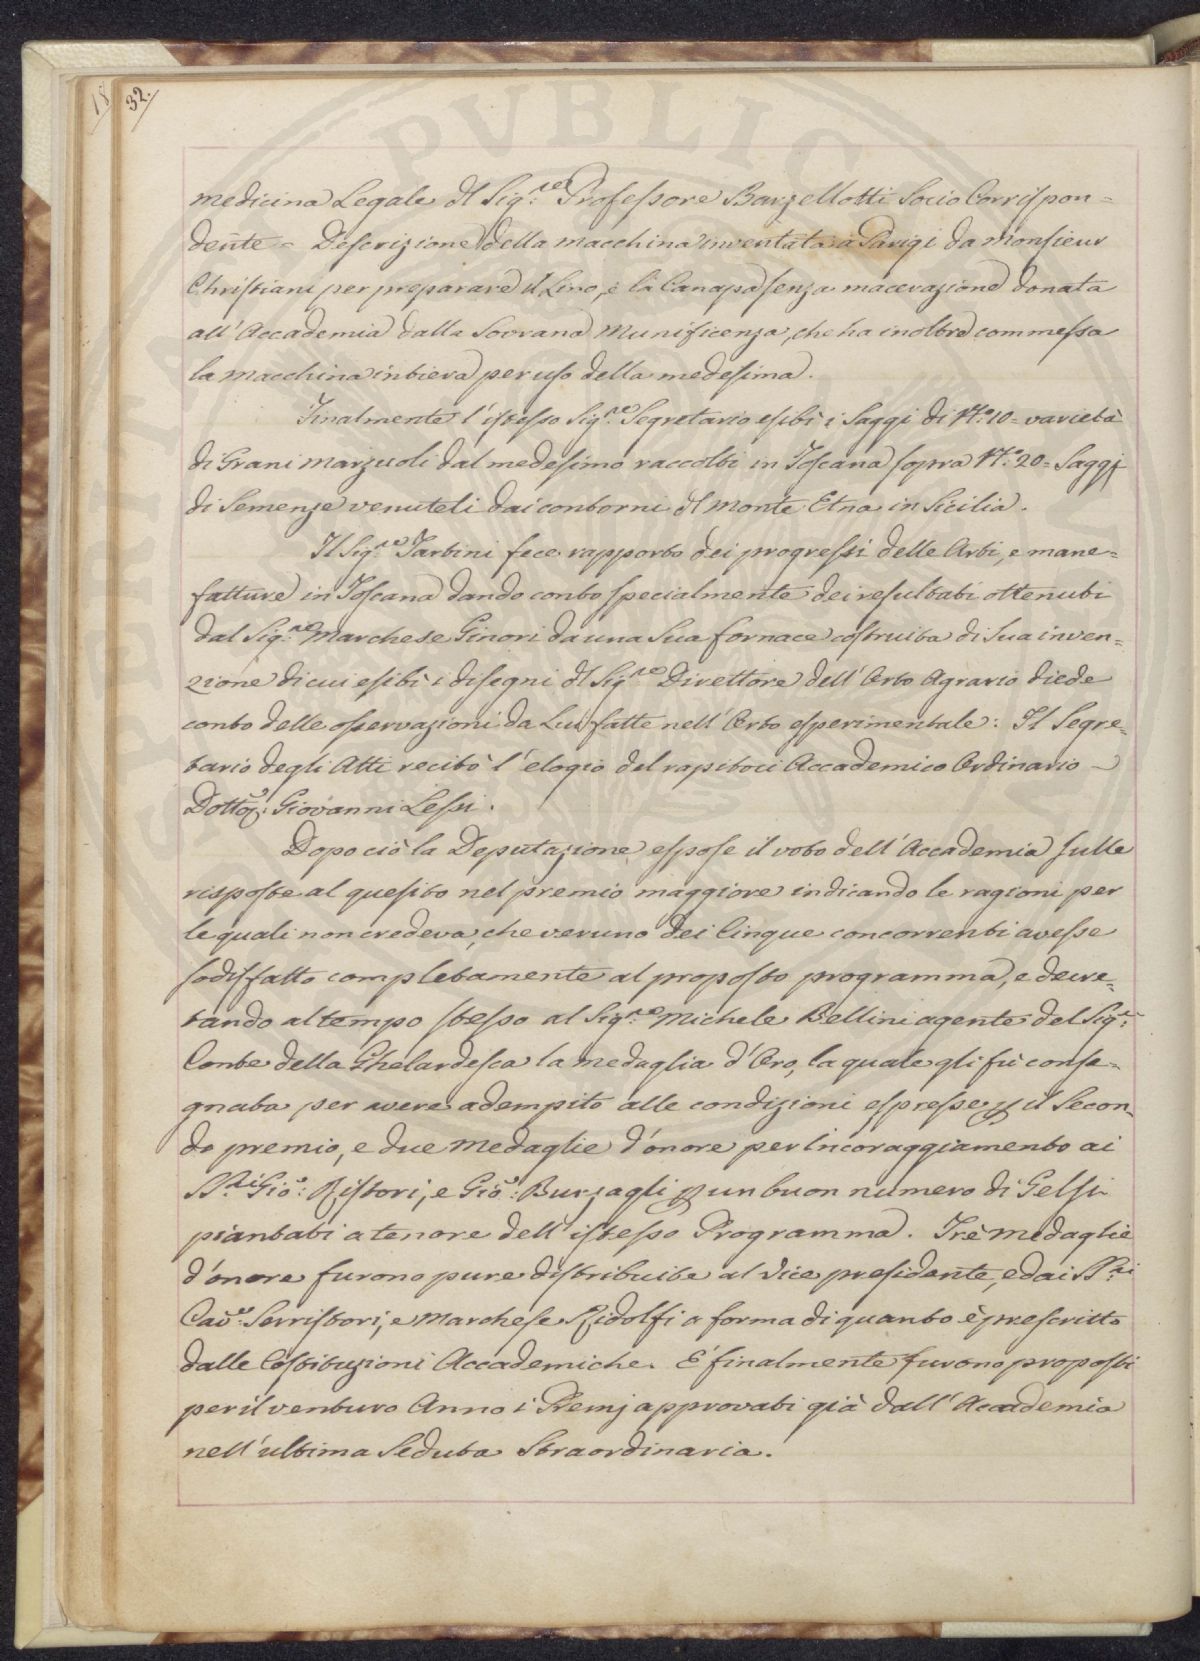 18
32.
medicina Legale dl Sig.re Professore Barzellotti Socio Corrispon=
dente = Descrizione della macchina inventata a Parigi da Monsieur
Christiani per preparare il Lino, e la Canapa senza macerazione donata
all'Accademia dalla Sovrana Munificenza, che ha inoltre commessa
la macchina intiera per uso della medesima.
Finalmente l'istesso Sig.re Segretario esibì i Saggi di N.º 10 = varietà
di Grani marzuoli dal medesimo raccolti in Toscana sopra N.º 20 = Saggj
di Semenze venuteli dai contorni dl Monte Etna in Sicilia.
Il Sig.re Tartini fece rapporto dei progressi delle Arti, e mane=
fatture in Toscana dando conto specialmente dei resultati ottenuti
dal Sig.re Marchese Ginori da una Sua fornace costruita di Sua inven=
zione di cui esibì i disegni dl Sig.re Direttore dell'Orto Agrario diede
conto delle osservazioni da Lui fatte nell'Orto esperimentale: Il Segre=
tario degli Atti recitò l'elogio del rapitoci Accademico Ordinario
Dotto.: Giovanni Lessi.
Dopo ciò la Deputazione espose il voto dell'Accademia sulle
risposte al quesito nel premio maggiore indicando le ragioni per
le quali non credeva, che veruno dei Cinque concorrenti avesse
sodisfatto completamente al proposto programma, e decre=
tando al tempo stesso al Sig.re Michele Bellini agente del Sig.r
Conte della Gherardesca la medaglia d'Oro, la quale gli fù conse=
gnata per avere adempito alle condizioni espresse p il Secon=
do premio, e due Medaglie d'onore per Incoraggiamento ai
SS.ri Gio: Ristori, e Gio: Burzagli p un buon numero di Gelsi
piantati a tenore dell'istesso Programma. Trè medaglie
d'onore furono pure distribuite al Vice presidente, e dai SS.ri
Cav. Serristori, e Marchese Ridolfi a forma di quanto è prescritto
dalle Costituzioni Accademiche. E' finalmente furono proposti
per il venturo Anno i Premj approvati già dall'Accademia
nell'ultima Seduta Straordinaria.